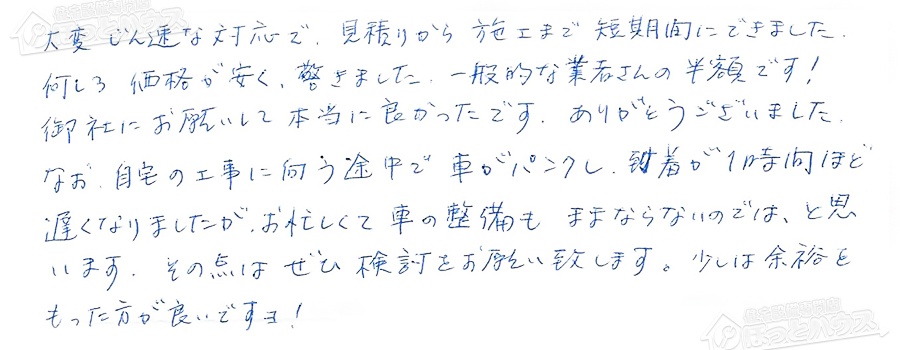 大変じん速な対応で、見積りから施工まで短期間にできました。
何しろ価格が安く、驚きました。一般的な業者さんの半額です！
御社にお願いして本当に良かったです。ありがとうございました。
なお、自宅の工事に向う途中で車がパンクし、到着が1時間ほど
遅くなりましたが、お忙しくて車の整備もままならないのでは、と思
います。その点はぜひ検討をお願い致します。少しは余裕を
もった方が良いですヨ！
ほっとハウス
ほっとハウス